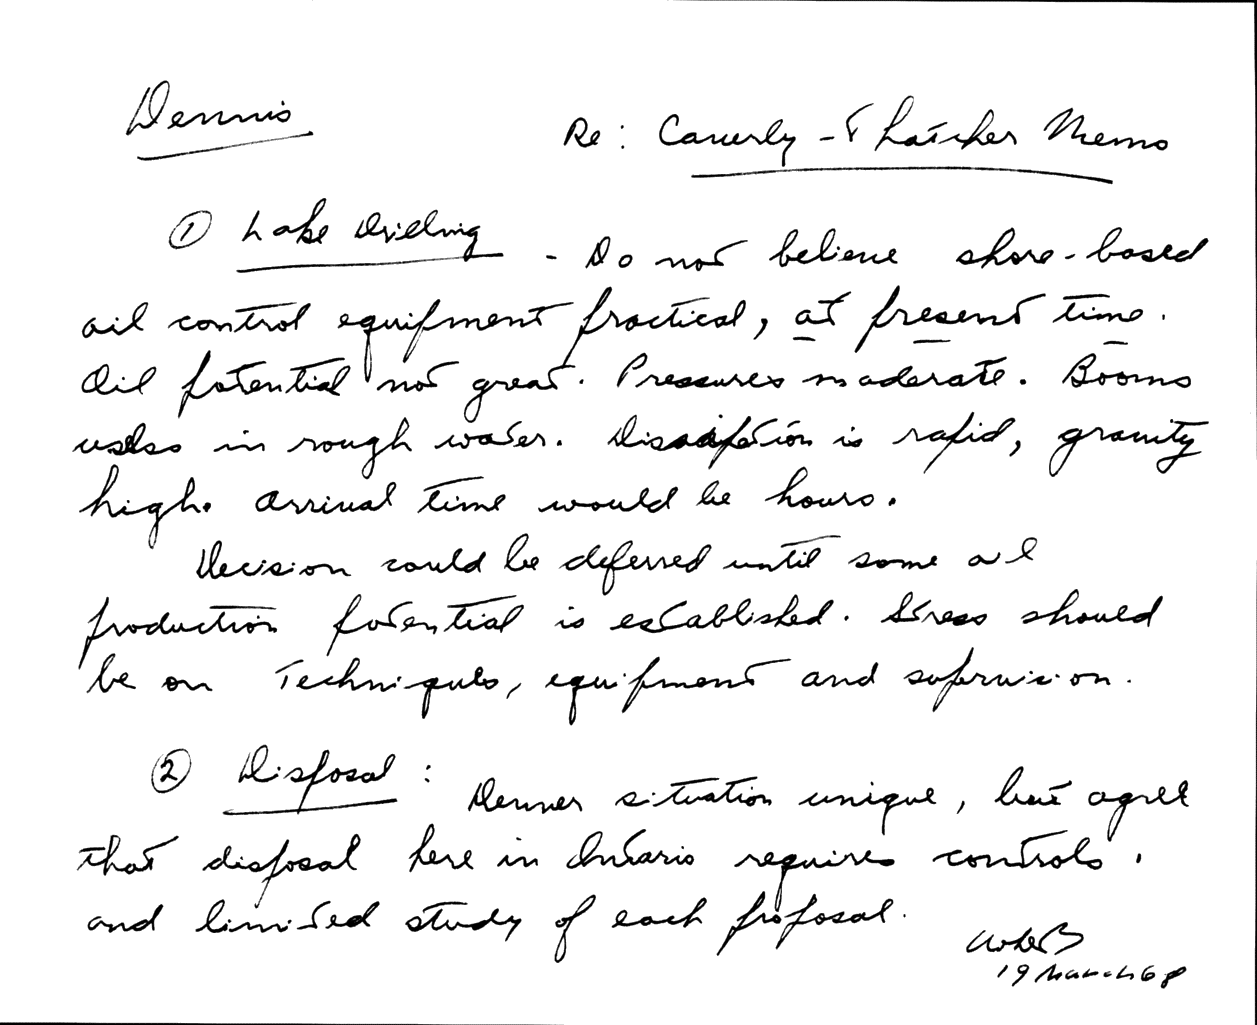 Dennis
Re: Caverly - Thatcher Memo
① Lake Drilling - Do not believe shore-based
oil control equipment practical, at present time.
Oil potential not great. Pressures moderate. Booms
useless in rough water. Dissipation is rapid, gravity
high. Arrival time would be hours.
Decision could be deferred until some oil
production potential is established. Stress should
be on Techniques, equipment and supervision.
② Disposal: Denver situation unique, but agree
that disposal here in Ontario requires controls.
and limited study of each proposal.
19 March 68